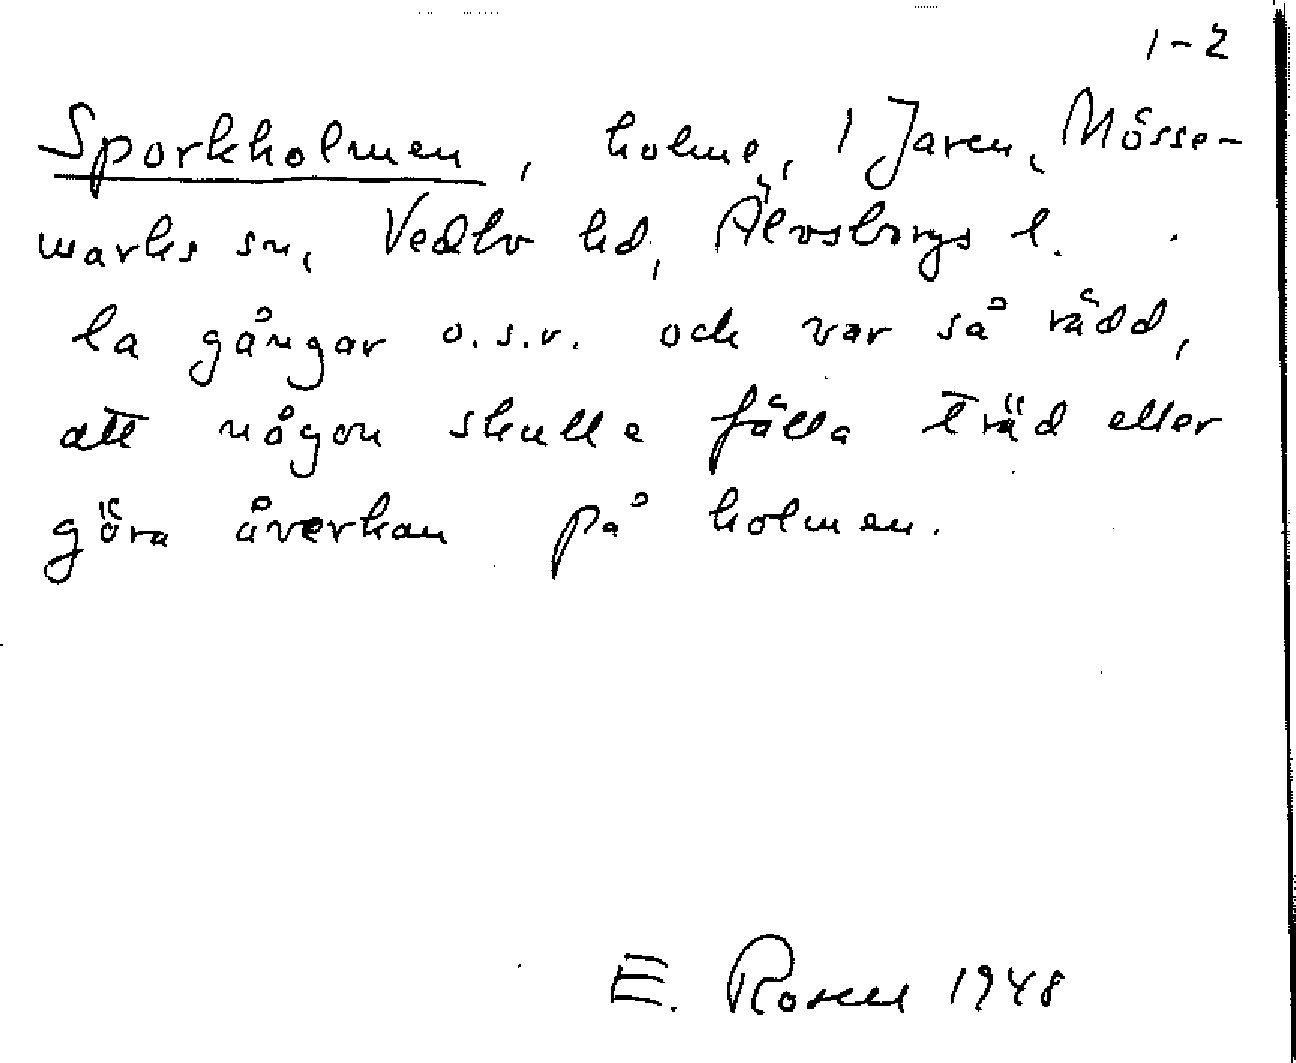 1-2
Sporkholmen, holme, i Jaren, Mösse-
marks sn, Vedbo hd, Älvsborgs l.
la gångar o.s.v. och var så rädd,
att någon skulle fälla träd eller
göra åverkan på holmen.
E. Rosell 1948